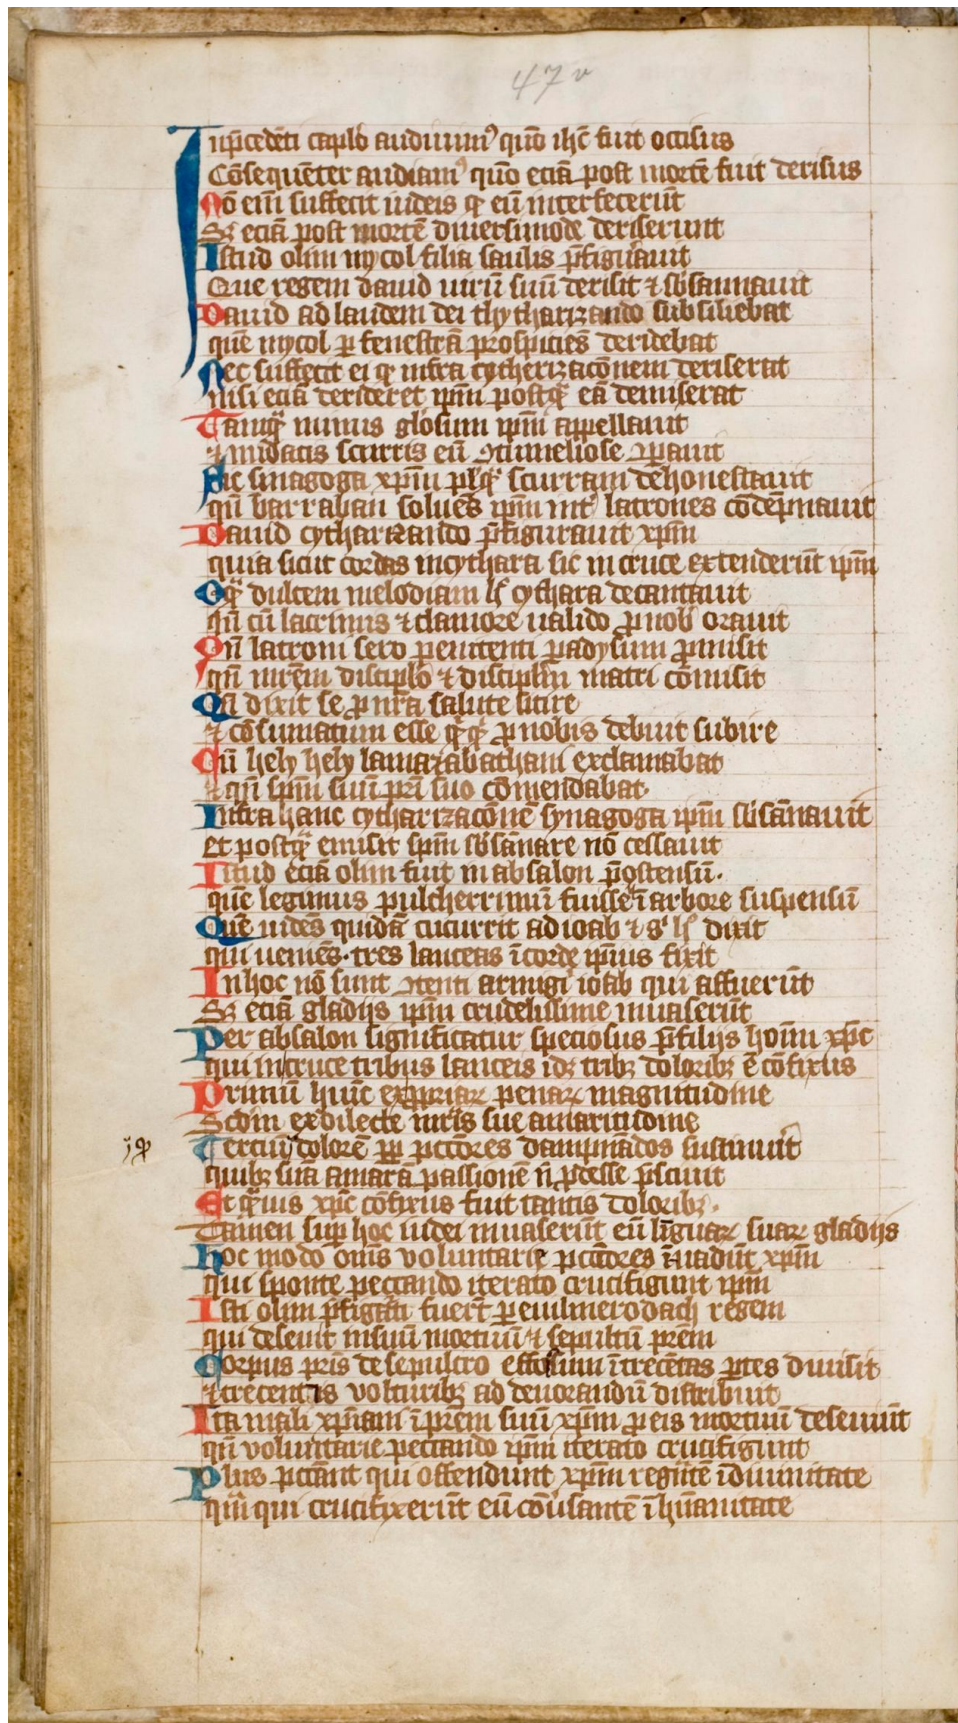 47 v
In p̄cedēti caplo audiuim⁹ quō ihc̄ fuit occisus
Cōsequēter audiam⁹ quō eciā post mortē fuit derisus
Nō eni suffecit iudeis ꝙ eū interfecerūt
Sꝫ eciā post mortē diuersimode deriserunt
Istud olim mycol filia saulis p̄figurauit
Que regem dauid uirū suū derisit ⁊ sbsannauit
Dauid ad laudem dei thytharizando subsiliebat
quē mycol ꝑ fenestrā prospiciēs deridebat
Nec suffecit ei ꝙ infra cytherizacōnem deriserat
nisi eciā derideret ip̄m postqᷓ eā demiserat
Tamqᷓ nimis gl̄osum ip̄m appellauit
⁊ nudatis scurris eū ꝯtumeliose ꝯparuit
Sic sinagoga xp̄m plꝰqᷓ scurram dehonestauit
qn̄ barraban soluēs ip̄m intꝰ latrones cōdēpnauit
Dauid cytharizando p̄figurauit xp̄m
quia sicut cordas in cythara sic in cruce extenderūt ip̄m
Oqᷓ dulcem melodiam h̄ cythara decantauit
qn̄ cū lacrimis ⁊ clamore ualido ꝓ nob̄ orauit
Qn̄ latroni sero penitenti ꝑadysum ꝓmisit
qn̄ mr̄em disciplo ⁊ disciplm̄ matri cōmisit
Qn̄ dixit se ꝓ nr̄a salute sitire
⁊ cōsumatum esse qͥcqͥd ꝓ nobis debuit subire
Cū hely hely lamazabathani exclamabat
⁊ qn̄ sp̄m suū pr̄i suo cōmendabat
Infra hanc cytharizacōnē synagoga ip̄m sbsānauit
et postqᷓ emisit sp̄m sbsānare nō cessauit
Istud eciā olim fuit in absalon p̄ostensū.
quē legimus pulcherrimū fuisse ī arbore suspensū
Quē uidēs quidā cucurrit ad ioab ⁊ sͥ h̄ dixit
qui ueniēs tres lanceas ī corde ip̄ius fixit
In hoc nō sunt ꝯtenti armigī ioab qui affuerūt
Sꝫ eciā gladijs ip̄m crudelissime inuaserūt
Per absalon significatur speciosus p̄ filijs hoīm xp̄c
qui in cruce tribus lanceis idꝫ tribꝫ doloribꝫ ē cōfixus
Primū huic expriaꝝ penaꝝ magnitudine
Scdm̄ ex dilecte mr̄is sue amaritudine
Terciū dolorē ꝓ pcc̄tores dampnādos sustinuit
quibꝫ suā amarā passionē nō ꝓdesse p̄sciuit
Et qᷓuis xp̄c cōfixus fuit tantis doloribꝫ.
Tamen sup hoc iudei inuaserūt eū līguaꝝ suaꝝ gladijs
hoc modo om̄s voluntarie pcc̄tores īuadūt xp̄m
qui sponte peccando iterato crucifigunt ip̄m
Isti olim p̄figūti fuerūt ꝑ euilmerodach regem
qui deseuit in suū mortuū ⁊ sepultū pr̄em
Corpus pr̄is de sepulcro effossum ī trecētas ꝑtes diuisit
⁊ trecentis volturibꝫ ad deuorandū distribuit
Ita mali xp̄iani ī pr̄em suū xp̄m ꝓ eis mortuū deseuiūt
qn̄ voluntarie peccando ip̄m iterato crucifigunt
Plus pctc̄ant qui offendunt xp̄m regnātē ī diuinitate
qᷓm qui crucifixerūt eū cōūsantē ī hūanitate